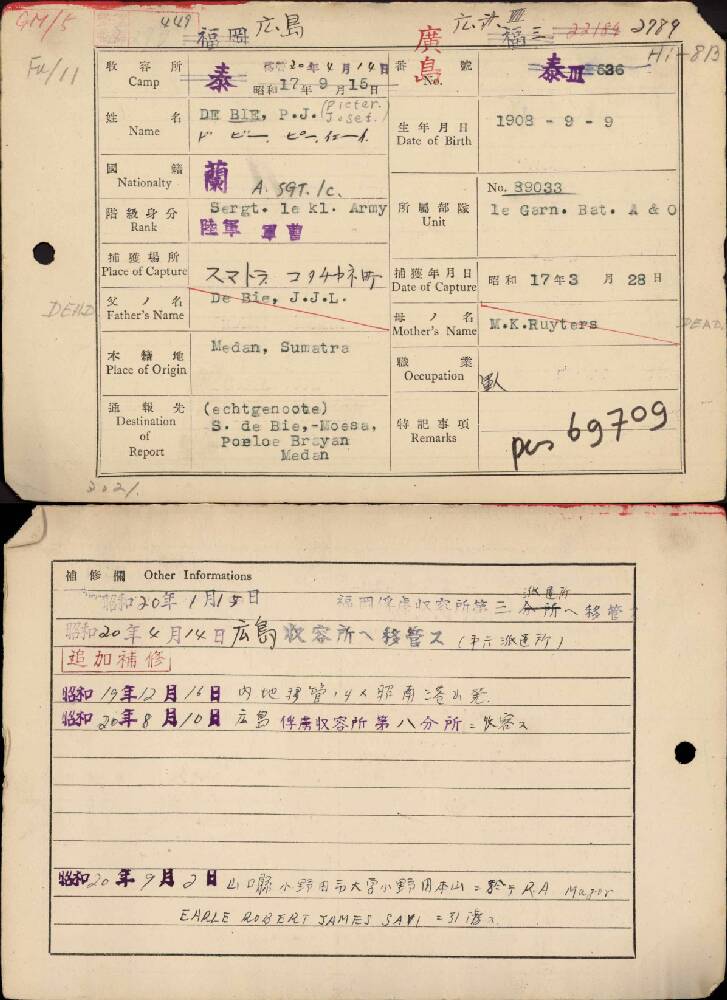 GM/5
449
福岡 広島
福三 22184 2789
Fu/11
廣島
Hi-8B
收容所 Camp 泰 昭和20年4月14日
昭和17年9月15日
番號 No. 泰III 636
姓名 Name DE BIE, P.J. (Pieter. Josef.)
ド ビー. ピー.
生年月日 Date of Birth 1903 - 9 - 9
國籍 Nationalty 蘭
A. SGT. 1c.
階級身分 Rank Sergt. 1e kl. Army
陸軍 軍曹
所屬部隊 Unit No. 89033
1e Garn. Bat. A & O
捕獲場所 Place of Capture スマトラ コタチヤネ町
捕獲年月日 Date of Capture 昭和 17年3月28日
DEAD
父ノ名 Father's Name De Bie, J.J.L.
母ノ名 Mother's Name M.K.Ruyters
DEAD.
本籍地 Place of Origin Medan, Sumatra
職業 Occupation 軍人
通報先 Destination of Report (echtgenoote)
S. de Bie,-Moesa,
Poeloe Brayan
Medan
特記事項 Remarks 69709
3021.
補修欄 Other Informations
昭和20年1月15日 福岡俘虜収容所第三 分所へ移管
派遣所
昭和20年4月14日 広島 収容所へ移管ス (第六派遣所)
追加補修
昭和19年12月16日 内地移管ノタメ昭南港出発
昭和20年8月10日 広島俘虜収容所第八分所ニ収容ス
昭和20年9月2日 山口縣小野田市大字小野田本山ニ於テ R.A Major
EARLE ROBERT JAMES SAVI ニ引渡ス